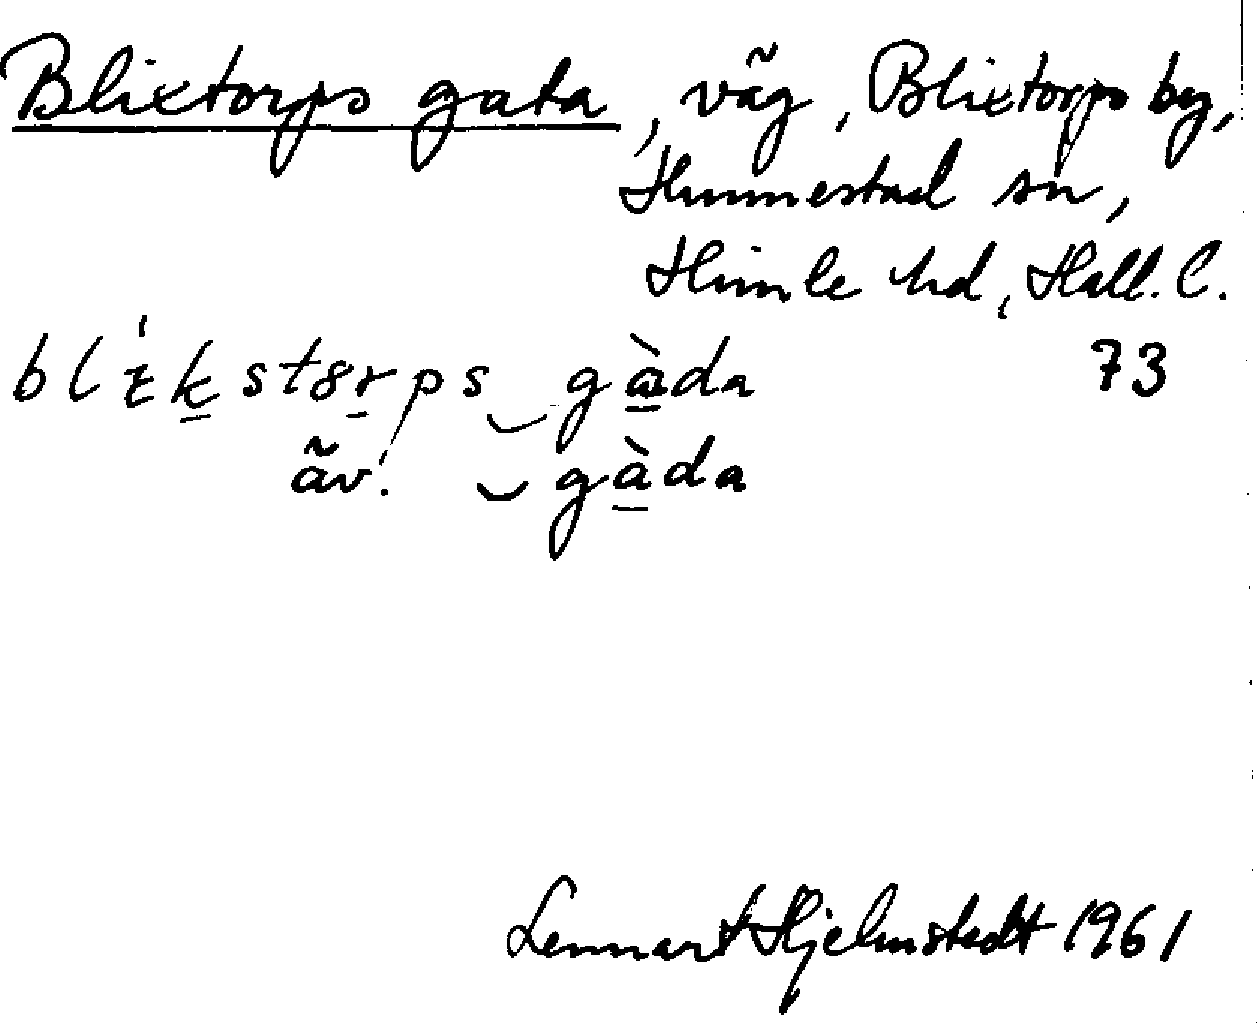 Blixtorps gata, väg, Blixtorps by,
Hunnestad sn,
Himle hd, Hall. l.
73
blɩ́kstɵrps‿gàda
äv. ‿gàda
Lennart Hjelmstedt 1961